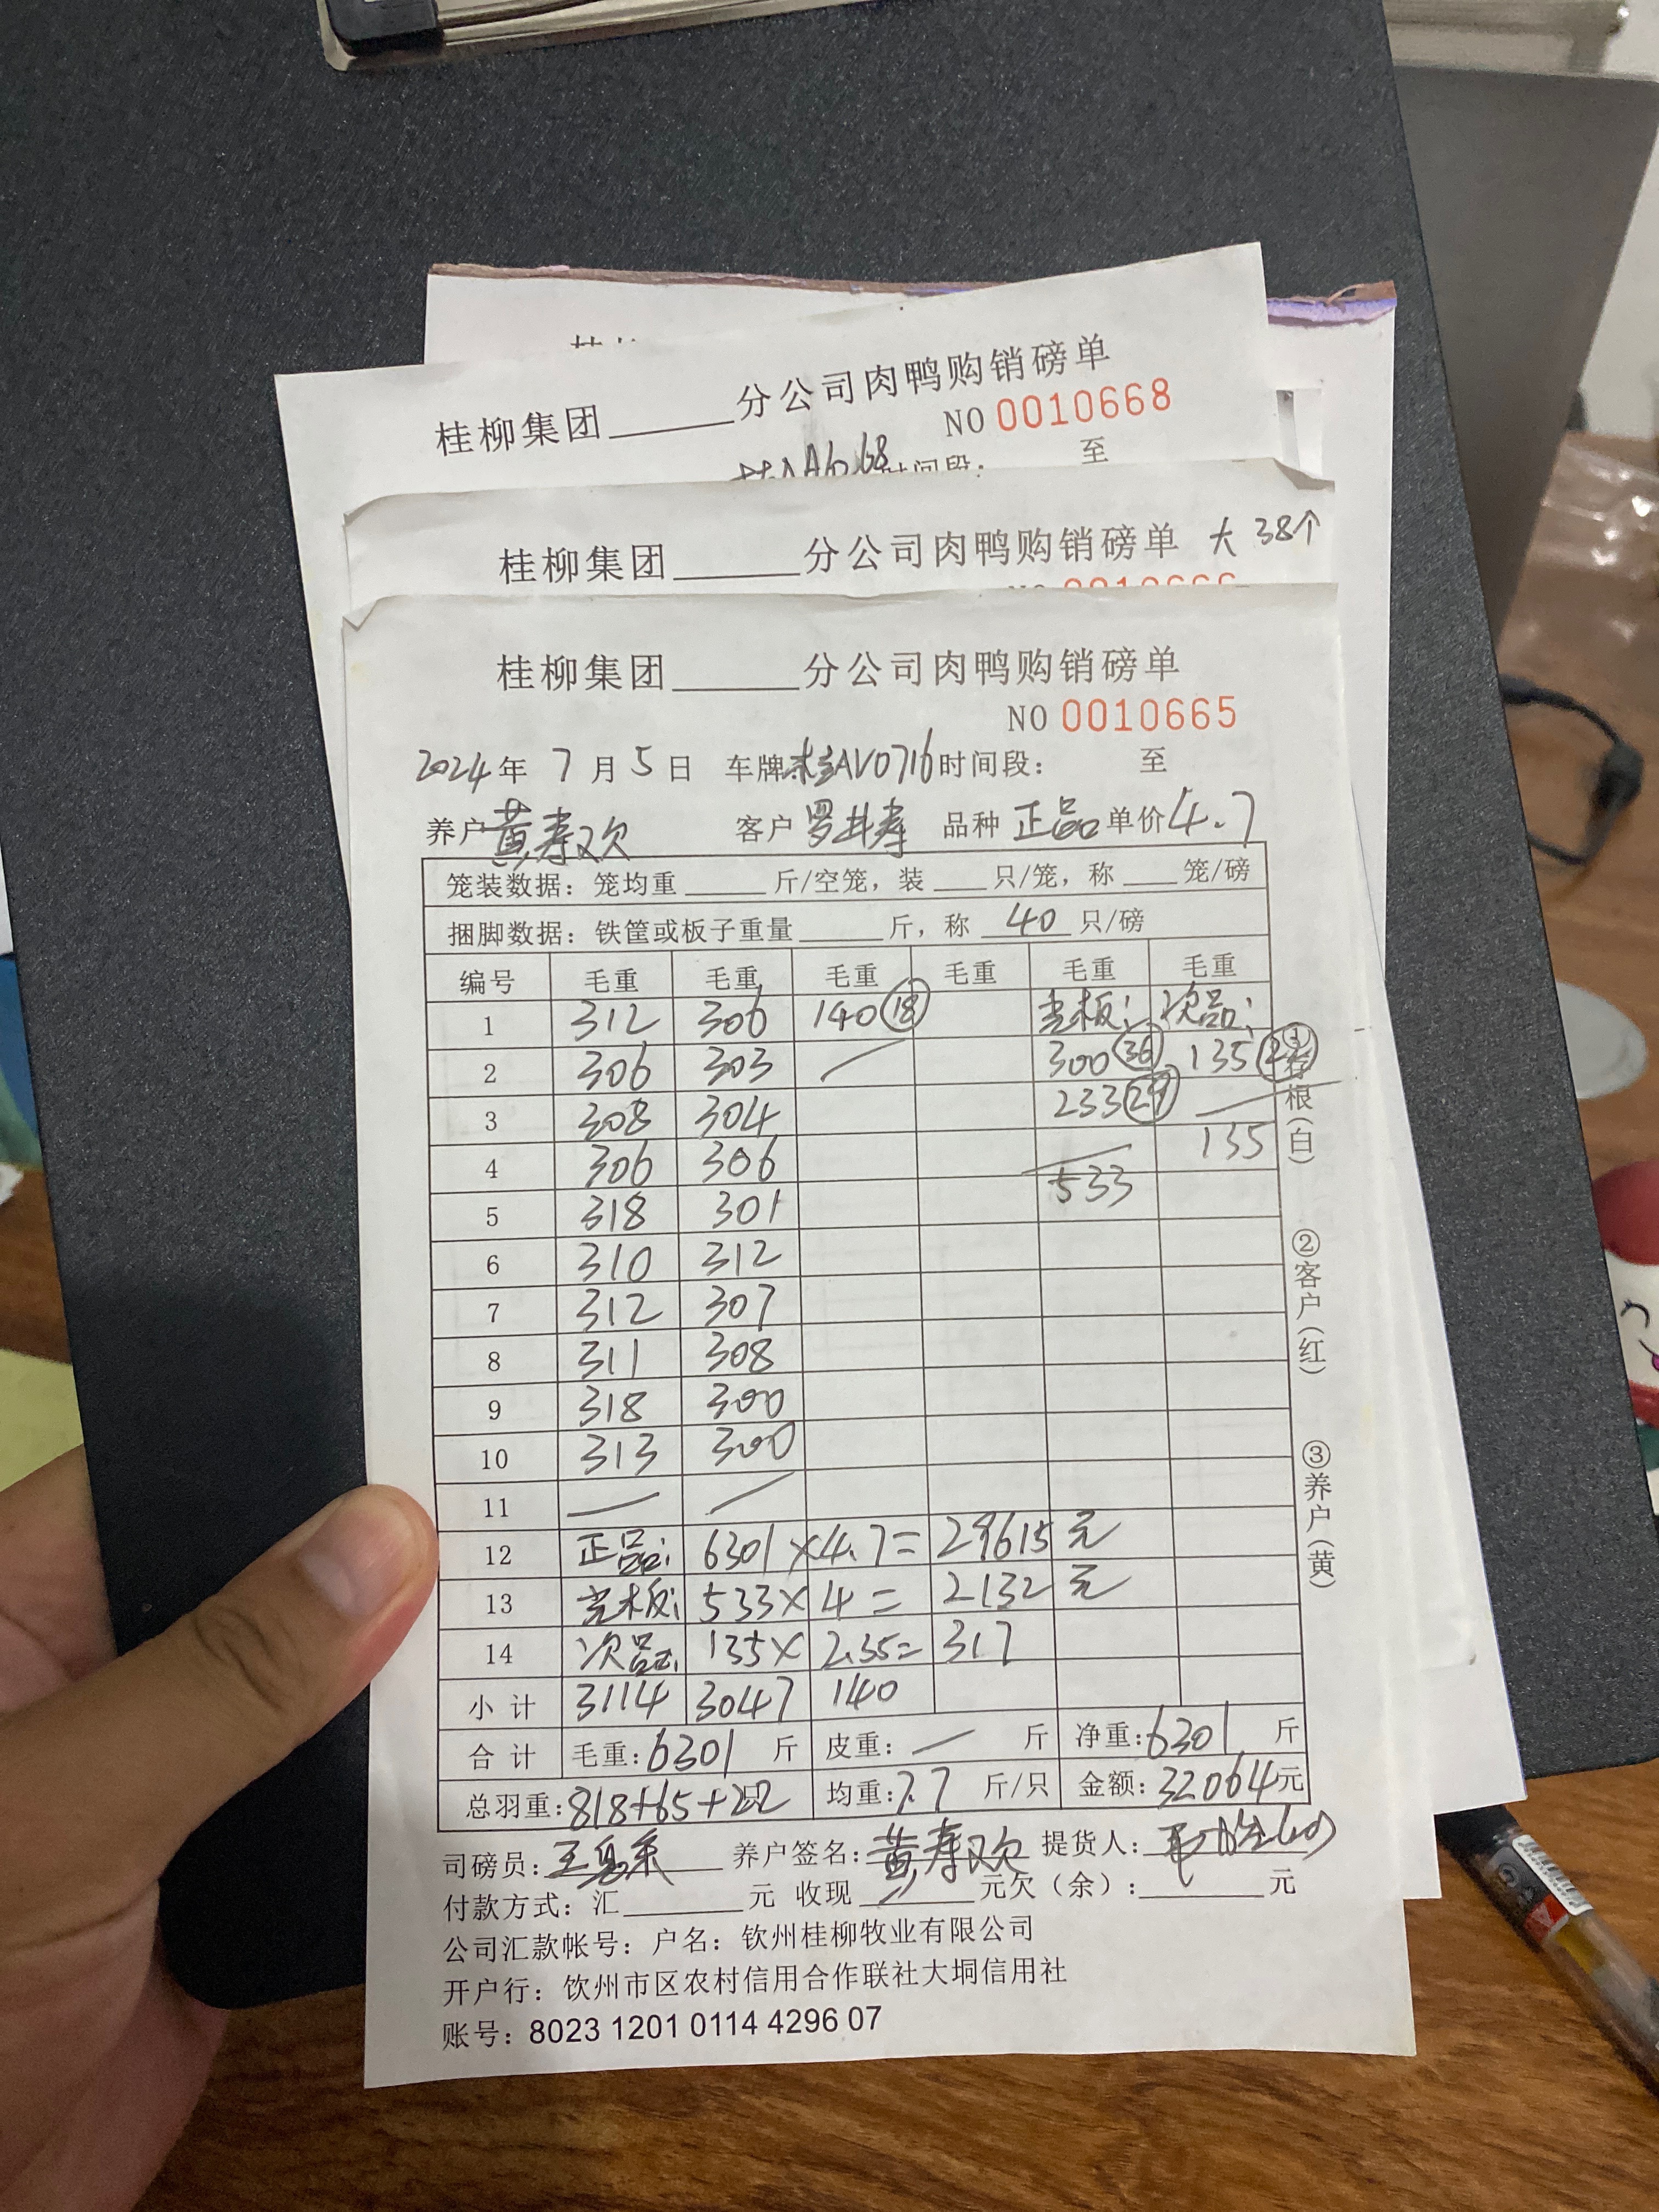 桂柳集团______分公司肉鸭购销磅单
NO 0010668
时间段: 至
桂柳集团______分公司肉鸭购销磅单 大 38个
桂柳集团______分公司肉鸭购销磅单
NO 0010665
2024年 7月5日 车牌桂AV0716时间段: 至
养户黄寿欢 客户 罗井寿 品种 正品 单价4.7
笼装数据: 笼均重____斤/空笼, 装___只/笼, 称___笼/磅
捆脚数据: 铁筐或板子重量_____斤, 称 40 只/磅
编号 毛重 毛重 毛重 毛重 毛重 毛重
1 312 306 140 ⑱ 光板: 次品:
2 306 303 / 300 ㊱ 135
3 308 304 233 ㉙
4 306 306 135
5 318 301 533
6 310 312
7 312 307
8 311 308
9 318 300
10 313 300
11 — /
12 正品: 6301×4.7= 29615元
13 光板: 533×4= 2132元
14 次品: 135×2.35= 317
小计 3114 3047 140
合计 毛重:6301 斤 皮重: — 斤 净重:6301 斤
总羽重:818+65+22只 均重:7.7 斤/只 金额:32064元
司磅员: 养户签名:黄寿欢 提货人:
付款方式: 汇______元 收现______元欠(余):______元
公司汇款帐号: 户名: 钦州桂柳牧业有限公司
开户行: 饮州市区农村信用合作联社大垌信用社
账号: 8023 1201 0114 4296 07
①存根(白)
②客户(红)
③养户(黄)